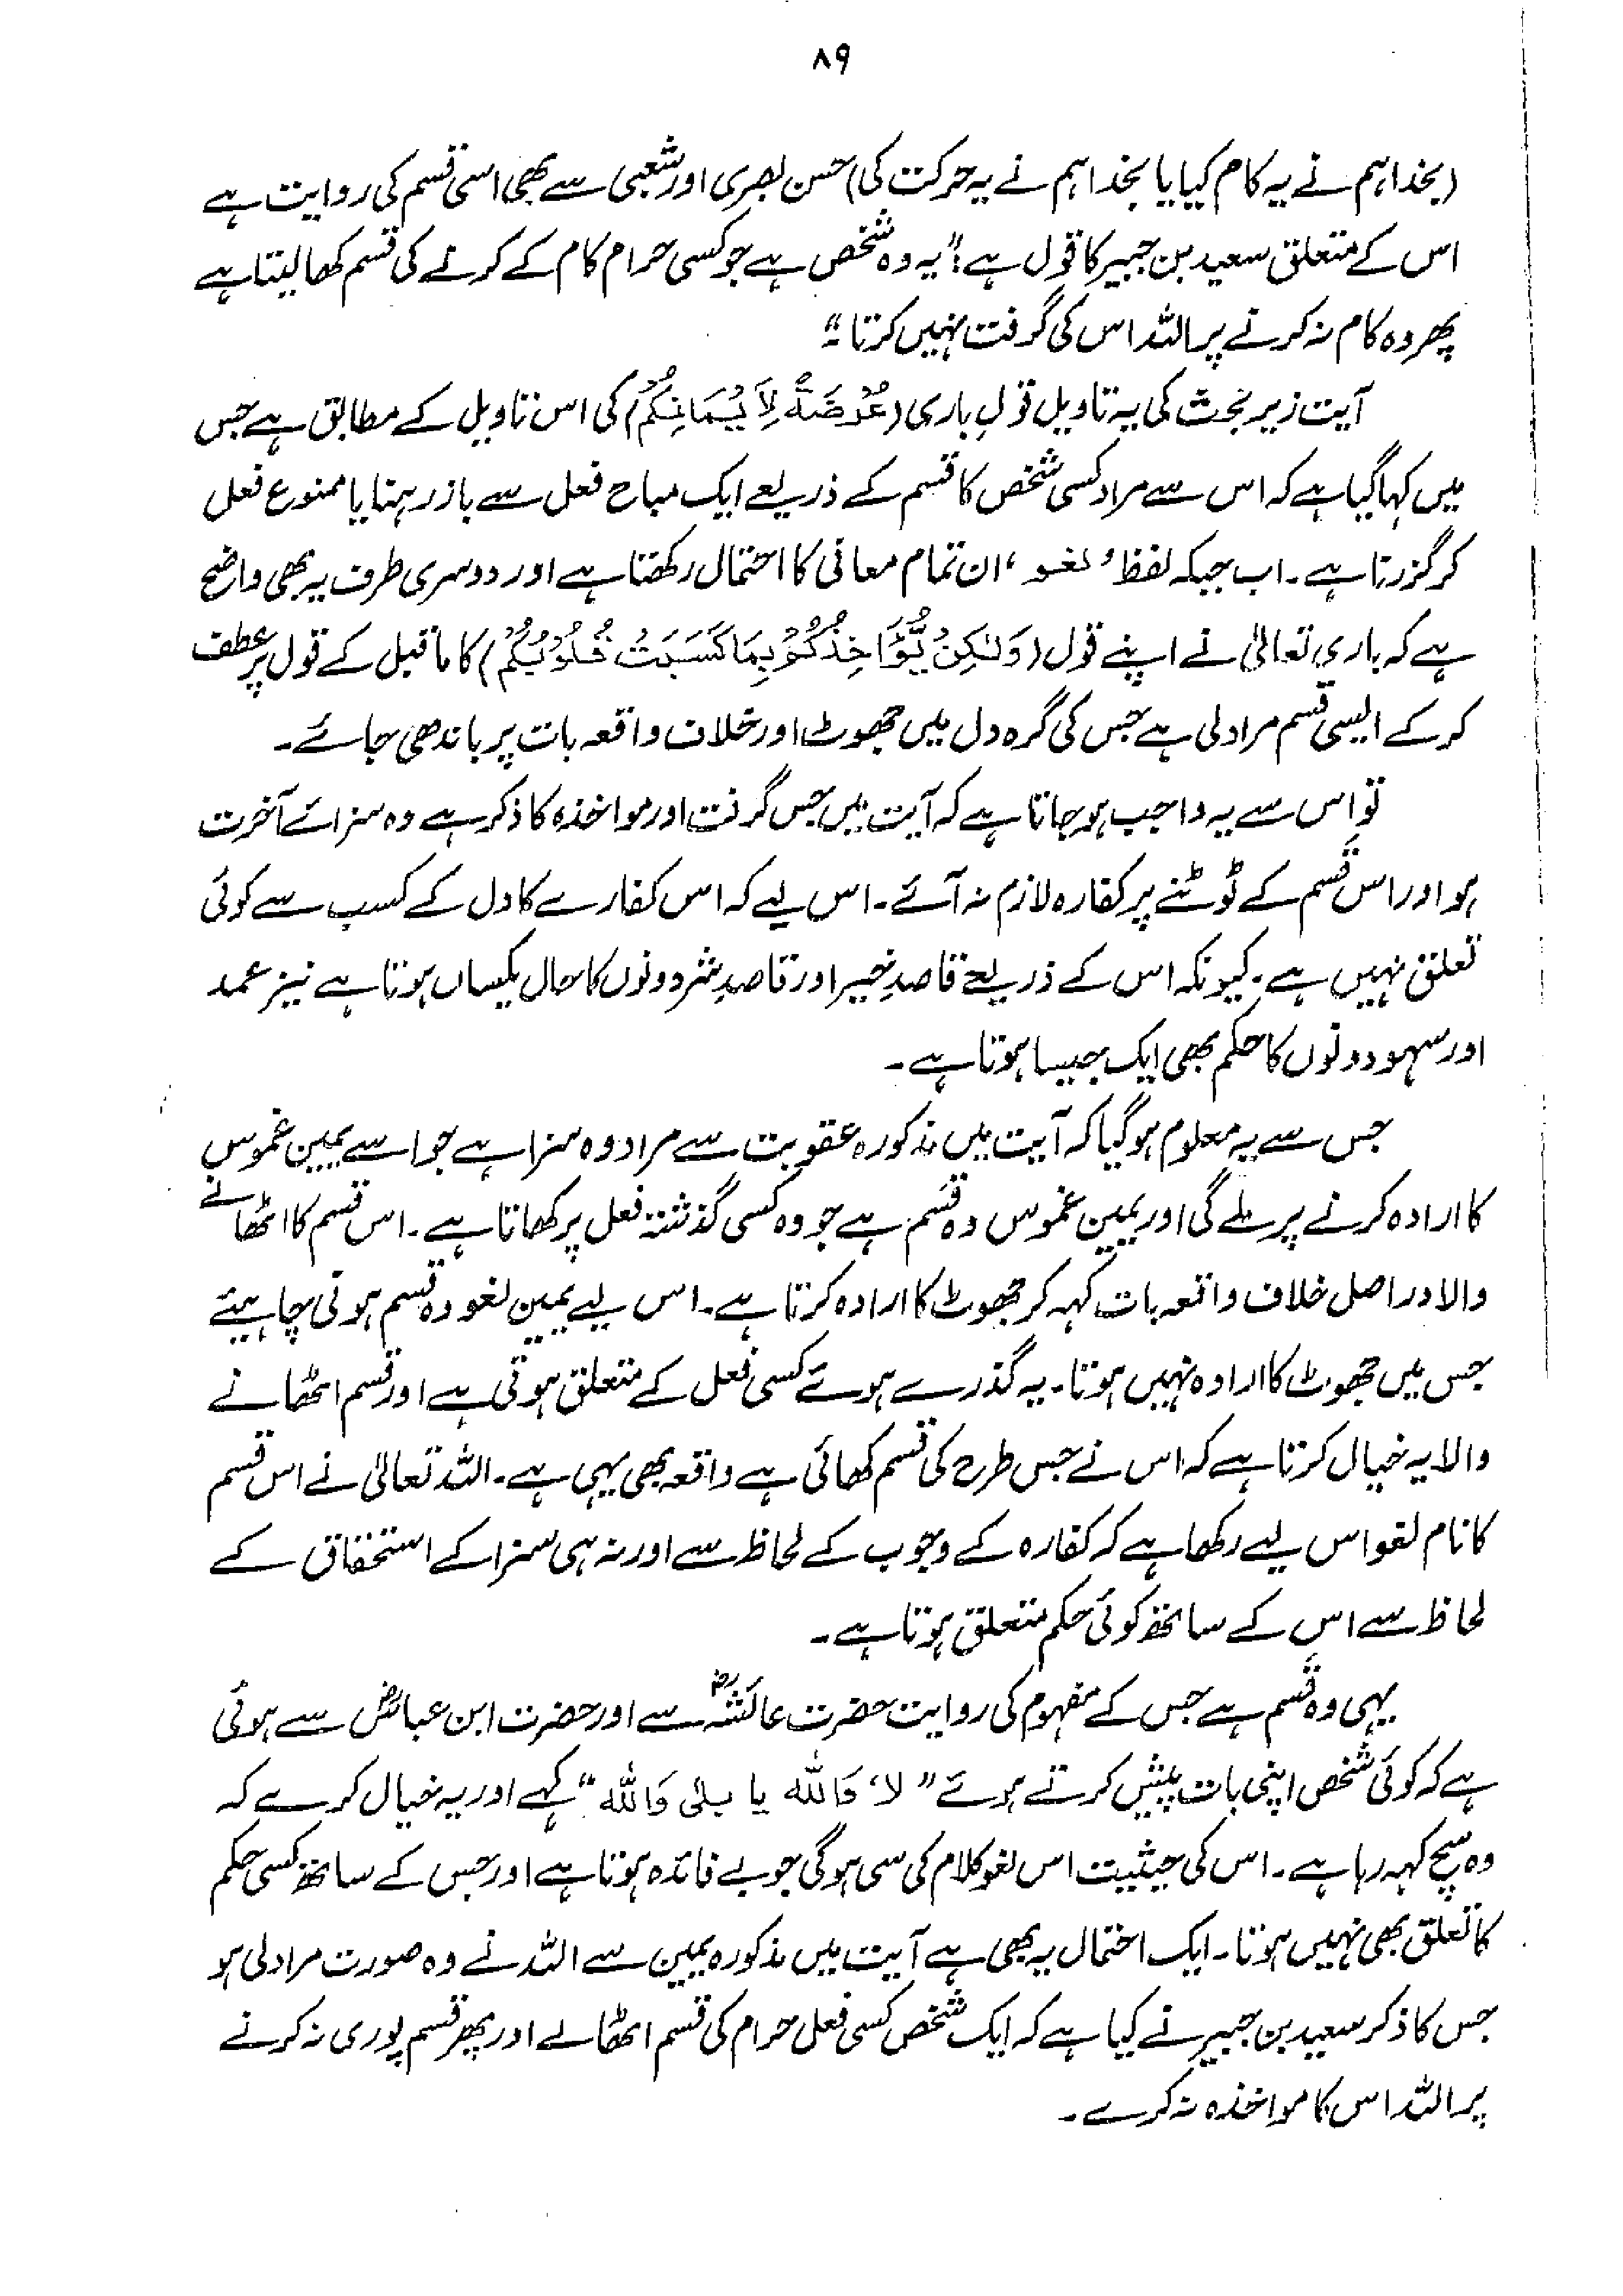 ۸۹
(بخدا ہم نے یہ کام کیا یا بخدا ہم نے یہ حرکت کی) حسن بصری اور شعبی سے بھی اسی قسم کی روایت ہے
اس کے متعلق سعید بن جبیر کا قول ہے: "یہ وہ شخص ہے جو کسی حرام کام کے کرنے کی قسم کھا لیتا ہے
پھر وہ کام نہ کرنے پر اللہ اس کی گرفت نہیں کرتا۔"
آیت زیر بحث کی یہ تاویل قولِ باری (عُرْضَةً لِاَيْمَانِكُمْ) کی اس تاویل کے مطابق ہے جس
میں کہا گیا ہے کہ اس سے مراد کسی شخص کا قسم کے ذریعے ایک مباح فعل سے باز رہنا یا ممنوع فعل
کر گزرنا ہے۔ اب جبکہ لفظ 'لغو' ان تمام معانی کا احتمال رکھتا ہے اور دوسری طرف یہ بھی واضح
ہے کہ باری تعالیٰ نے اپنے قول (وَلٰكِنْ يُّؤَاخِذُكُمْ بِمَا كَسَبَتْ قُلُوْبُكُمْ) کا ماقبل کے قول پر عطف
کر کے ایسی قسم مراد لی ہے جس کی گرہ دل میں جھوٹ اور خلاف واقعہ بات پر باندھی جائے۔
تو اس سے یہ واجب ہو جاتا ہے کہ آیت میں جس گرفت اور مواخذہ کا ذکر ہے وہ سزائے آخرت
ہو اور اس قسم کے ٹوٹنے پر کفارہ لازم نہ آئے۔ اس لیے کہ اس کفارے کا دل کے کسب سے کوئی
تعلق نہیں ہے۔ کیونکہ اس کے ذریعے قاصدِ خیر اور قاصدِ شر دونوں کا حال یکساں ہوتا ہے نیز عمد
اور سہو دونوں کا حکم بھی ایک جیسا ہوتا ہے۔
جس سے یہ معلوم ہو گیا کہ آیت میں مذکورہ عقوبت سے مراد وہ سزا ہے جو اسے یمین غموس
کا ارادہ کرنے پر ملے گی اور یمین غموس وہ قسم ہے جو وہ کسی گذشتہ فعل پر کھاتا ہے۔ اس قسم کا اٹھانے
والا دراصل خلاف واقعہ بات کہہ کر جھوٹ کا ارادہ کرتا ہے۔ اس لیے یمین لغو وہ قسم ہونی چاہیئے
جس میں جھوٹ کا ارادہ نہیں ہوتا۔ یہ گذرے ہوئے کسی فعل کے متعلق ہوتی ہے اور قسم اٹھانے
والا یہ خیال کرتا ہے کہ اس نے جس طرح کی قسم کھائی ہے واقعہ بھی یہی ہے۔ اللہ تعالیٰ نے اس قسم
کا نام لغو اس لیے رکھا ہے کہ کفارہ کے وجوب کے لحاظ سے اور نہ ہی سزا کے استحقاق کے
لحاظ سے اس کے ساتھ کوئی حکم متعلق ہوتا ہے۔
یہی وہ قسم ہے جس کے مفہوم کی روایت حضرت عائشہؓ سے اور حضرت ابن عباسؓ سے ہوئی
ہے کہ کوئی شخص اپنی بات پیش کرتے ہوئے "لا، وَاللّٰه یا بلیٰ وَاللّٰه" کہے اور یہ خیال کرے کہ
وہ سچ کہہ رہا ہے۔ اس کی حیثیت اس لغو کلام کی سی ہو گی جو بے فائدہ ہوتا ہے اور جس کے ساتھ کسی حکم
کا تعلق بھی نہیں ہوتا۔ ایک احتمال یہ بھی ہے آیت میں مذکورہ یمین سے اللہ نے وہ صورت مراد لی ہو
جس کا ذکر سعید بن جبیر نے کیا ہے کہ ایک شخص کسی فعل حرام کی قسم اٹھا لے اور پھر قسم پوری نہ کرنے
پر اللہ اس کا مواخذہ نہ کرے۔